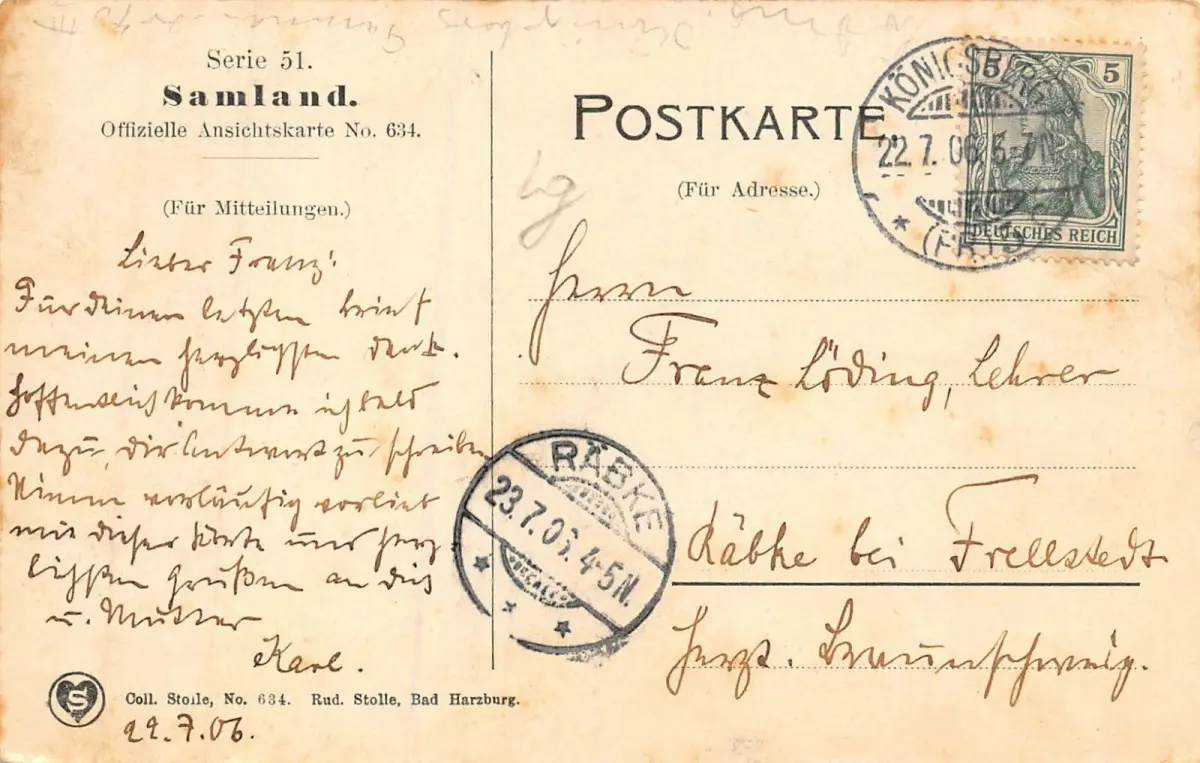 Serie 51.
Samland.
Offizielle Ansichtskarte No. 634.
(Für Mitteilungen.)
Lieber Franz!
Für deinen letzten Brief
meinen herzlichsten Dank.
Hoffentlich komme ich bald
dazu, dir Antwort zu schreiben
Nimm vorläufig vorlieb
mit dieser Karte und herz
lichsten Grüßen an dich
u. Mutter
Karl.
S
Coll. Stolle, No. 634. Rud. Stolle, Bad Harzburg.
22.7.06.
POSTKARTE.
(Für Adresse.)
KÖNIGSBERG
22.7.06. 6-7N
(PR.)
5 5
DEUTSCHES REICH
Herrn
Franz Löding, Lehrer
RÄBKE
23.7.06. 4-5N.
Räbke bei Frellstedt
Herzt. Braunschweig.